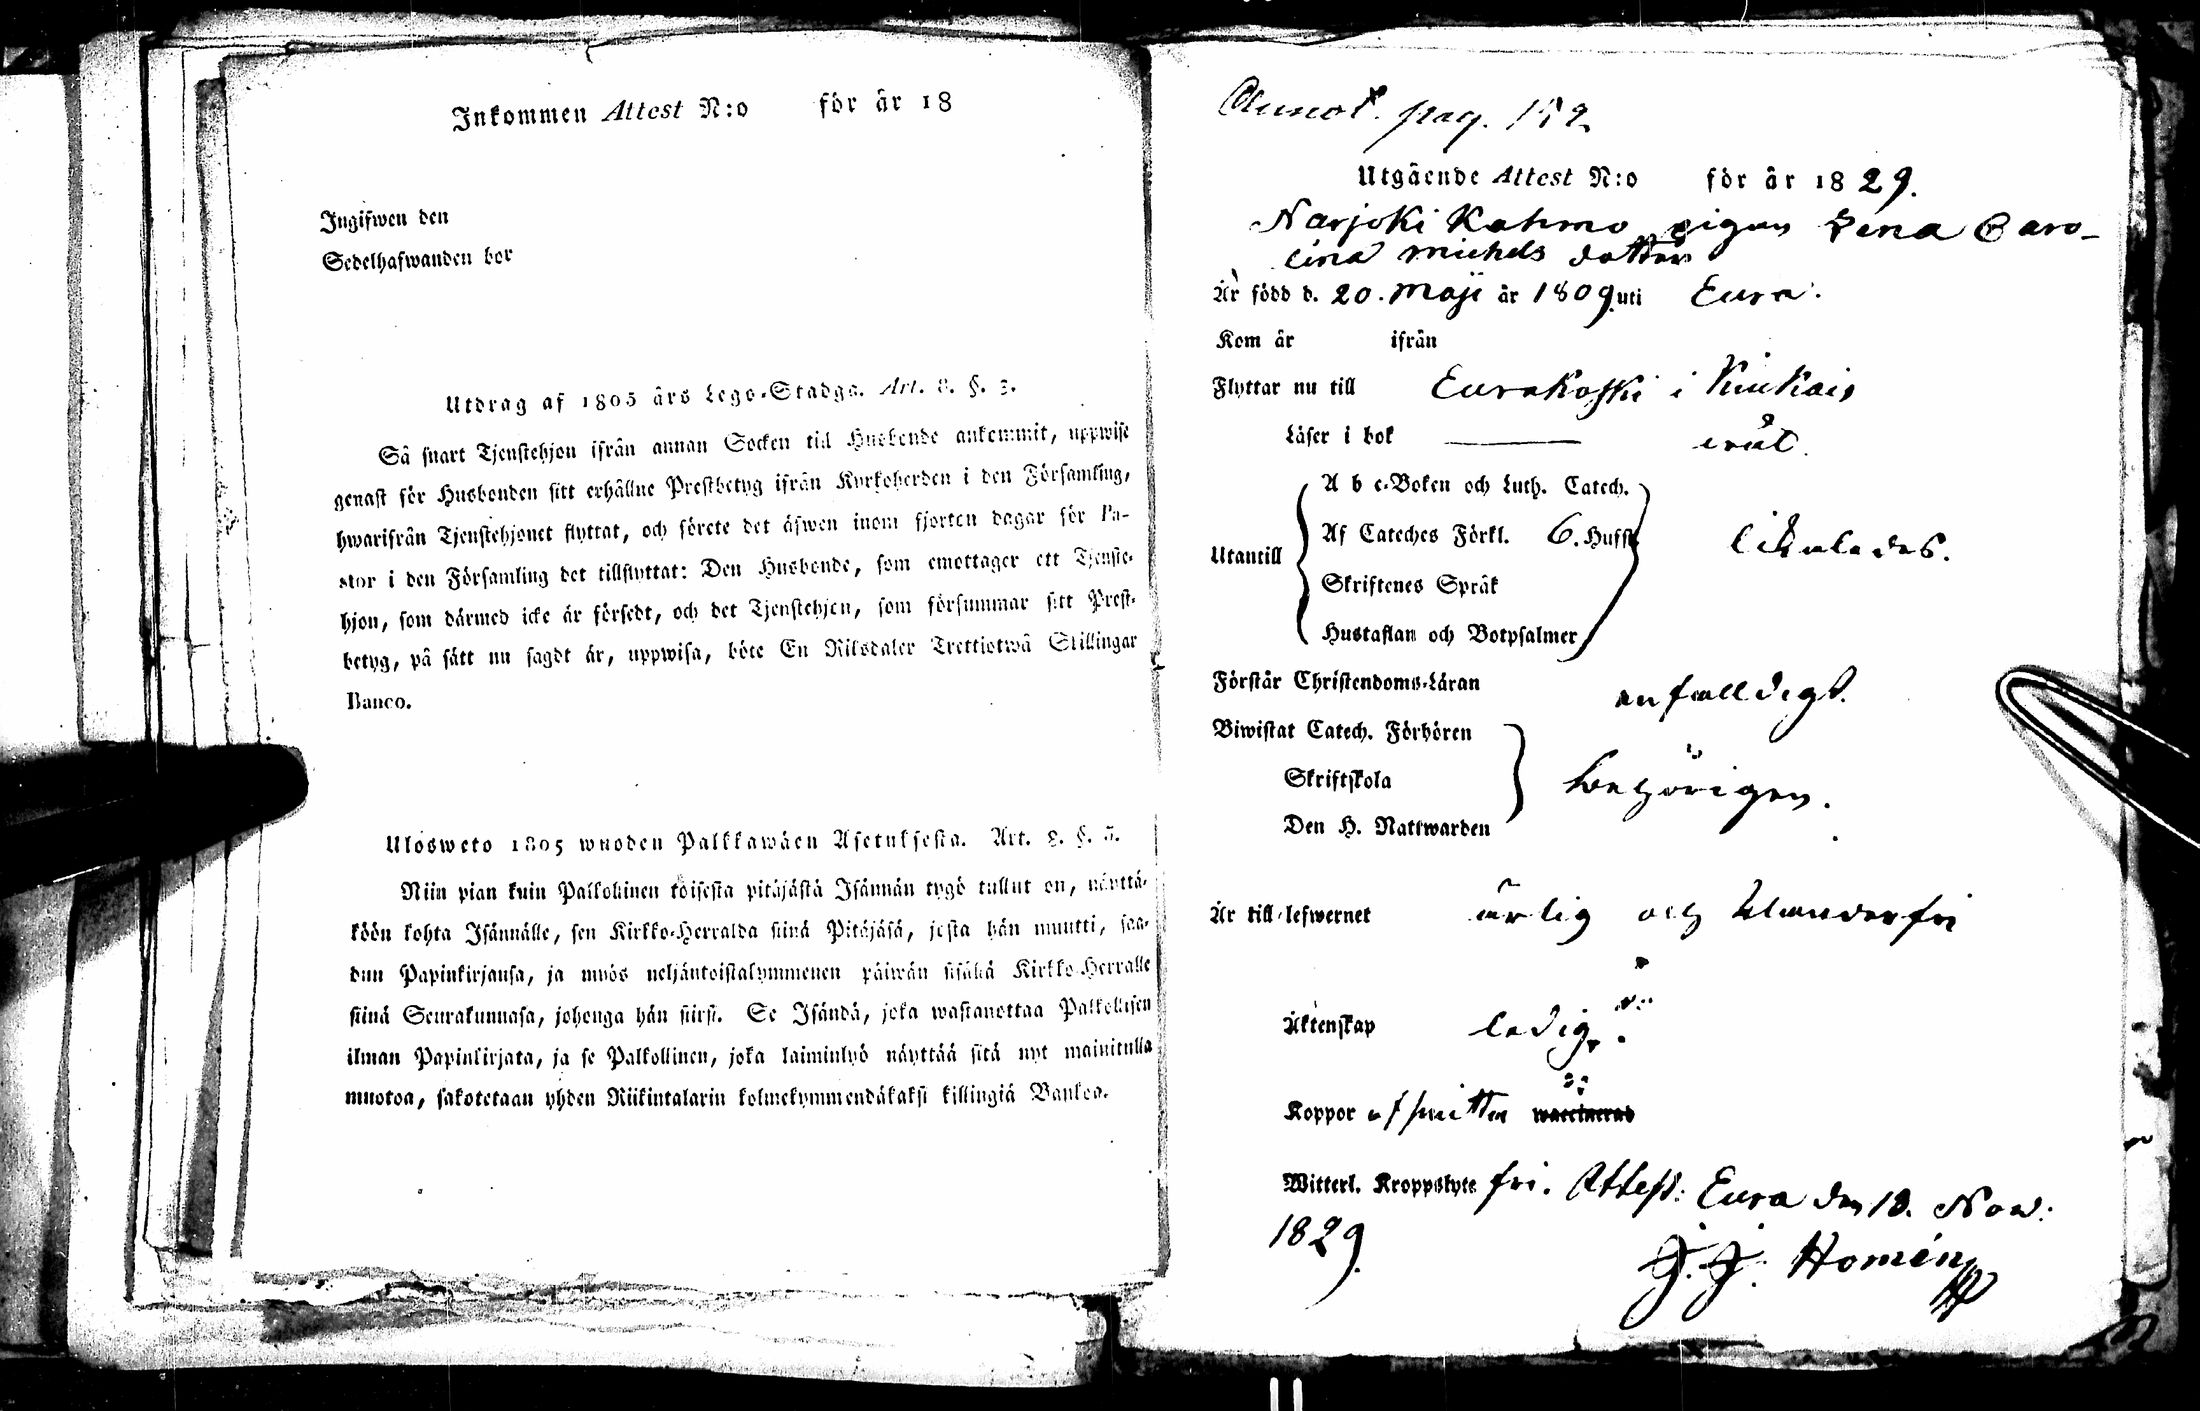 Inkommen Attest N:o för år 18
Ingifwen den
Sedelhafwanden bor
Utdrag af 1805 års Lego-Stadga. Art. 8. §. 3.
Så snart Tjenstehjon ifrån annan Socken till Husbonde ankommit, uppwise
genast för Husbonden sitt erhållne Prestbetyg ifrån Kyrkoherden i den Församling,
hwarifrån Tjenstehjonet flyttat, och förete det äfwen inom fjorten dagar för Pa-
stor i den Församling det tillflyttat: Den Husbonde, som emottager ett Tjenste-
hjon, som därmed icke är försedt, och det Tjenstehjon, som försummar sitt Prest-
betyg, på sätt nu sagdt är, uppwisa, böte En Riksdaler Trettiotwå Skillingar
Banco.
Ulosweto 1805 wuoden Palkkawäen Asetuksesta. Art. 8. §. 3.
Niin pian kuin Palkollinen toisesta pitäjästä Isännän tygö tullut on, näyttä-
köön kohta Isännälle, sen Kirkko-Herralda siinä Pitäjäsä, josta hän muutti, saa-
dun Papinkirjansa, ja myös neljäntoistakymmenen päiwän sisällä Kirkko-Herralle
siinä Seurakunnasa, johonga hän siirsi. Se Isändä, joka wastanottaa Palkollisen
ilman Papinkirjata, ja se Palkollinen, joka laiminlyö näyttää sitä nyt mainitulla
muotoa, sakotetaan yhden Riikintalarin kolmekymmendäkaksi killingiä Bankoa.
Annot. pag. 152
Utgående Attest N:o för år 1829.
Narjoki Kahmo pigan Lena Caro-
lina Michels dotter
Är född d. 20. Maji år 1809 uti Eura.
Kom år ifrån
Flyttar nu till Eurakoski i Kiukais
Läser i bok ——— wäl.
A b c-Boken och Luth. Catech.
Af Cateches Förkl. 6. Hufst.
Utantill likaledes.
Skriftenes Språk
Hustaflan och Botpsalmer
Förstår Christendoms-Läran enfalldigt.
Biwistat Catech. Förhören
Skriftskola behörigen.
Den H. Nattwarden
Är till lefwernet ärlig och klanderfri
Äktenskap ledig.
Koppor afsmitten waccinerad
Witterl. Kroppslyte fri. Attest: Eura den 18. Now:
1829.
J. J. Homén